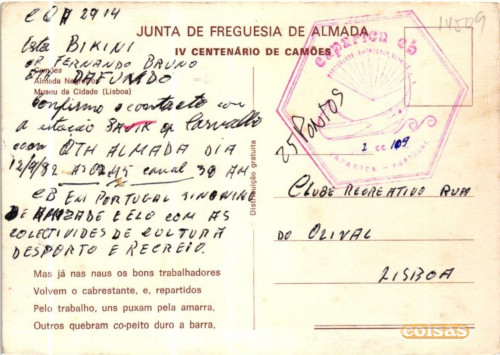 CQA 2914
JUNTA DE FREGUESIA DE ALMADA
IV CENTENÁRIO DE CAMÕES
Esta BIKINI
OP. FERNANDO BRUNO
QTH DAFUNDO
Camões
Almada Negreiros
Museu da Cidade (Lisboa)
Confirmo o contacto com
a estação op Carvalho
com QTH ALMADA DIA
12/9/82 canal 30 AM
CB EM PORTUGAL SINONIMO
DE AMIZADE E ELO COM AS
COLECTIVIDES DE CULTURA
DESPORTO E RECREIO.
Mas já nas naus os bons trabalhadores
Volvem o cabrestante, e, repartidos
Pelo trabalho, uns puxam pela amarra,
Outros quebram co-peito duro a barra,
Distribuição gratuita
caparica cb
CAPARICA - PORTUGAL
25 PONTOS
2 CC 109
14509
CLUBE RECREATIVO RUA
DO OLIVAL
LISBOA
coisas